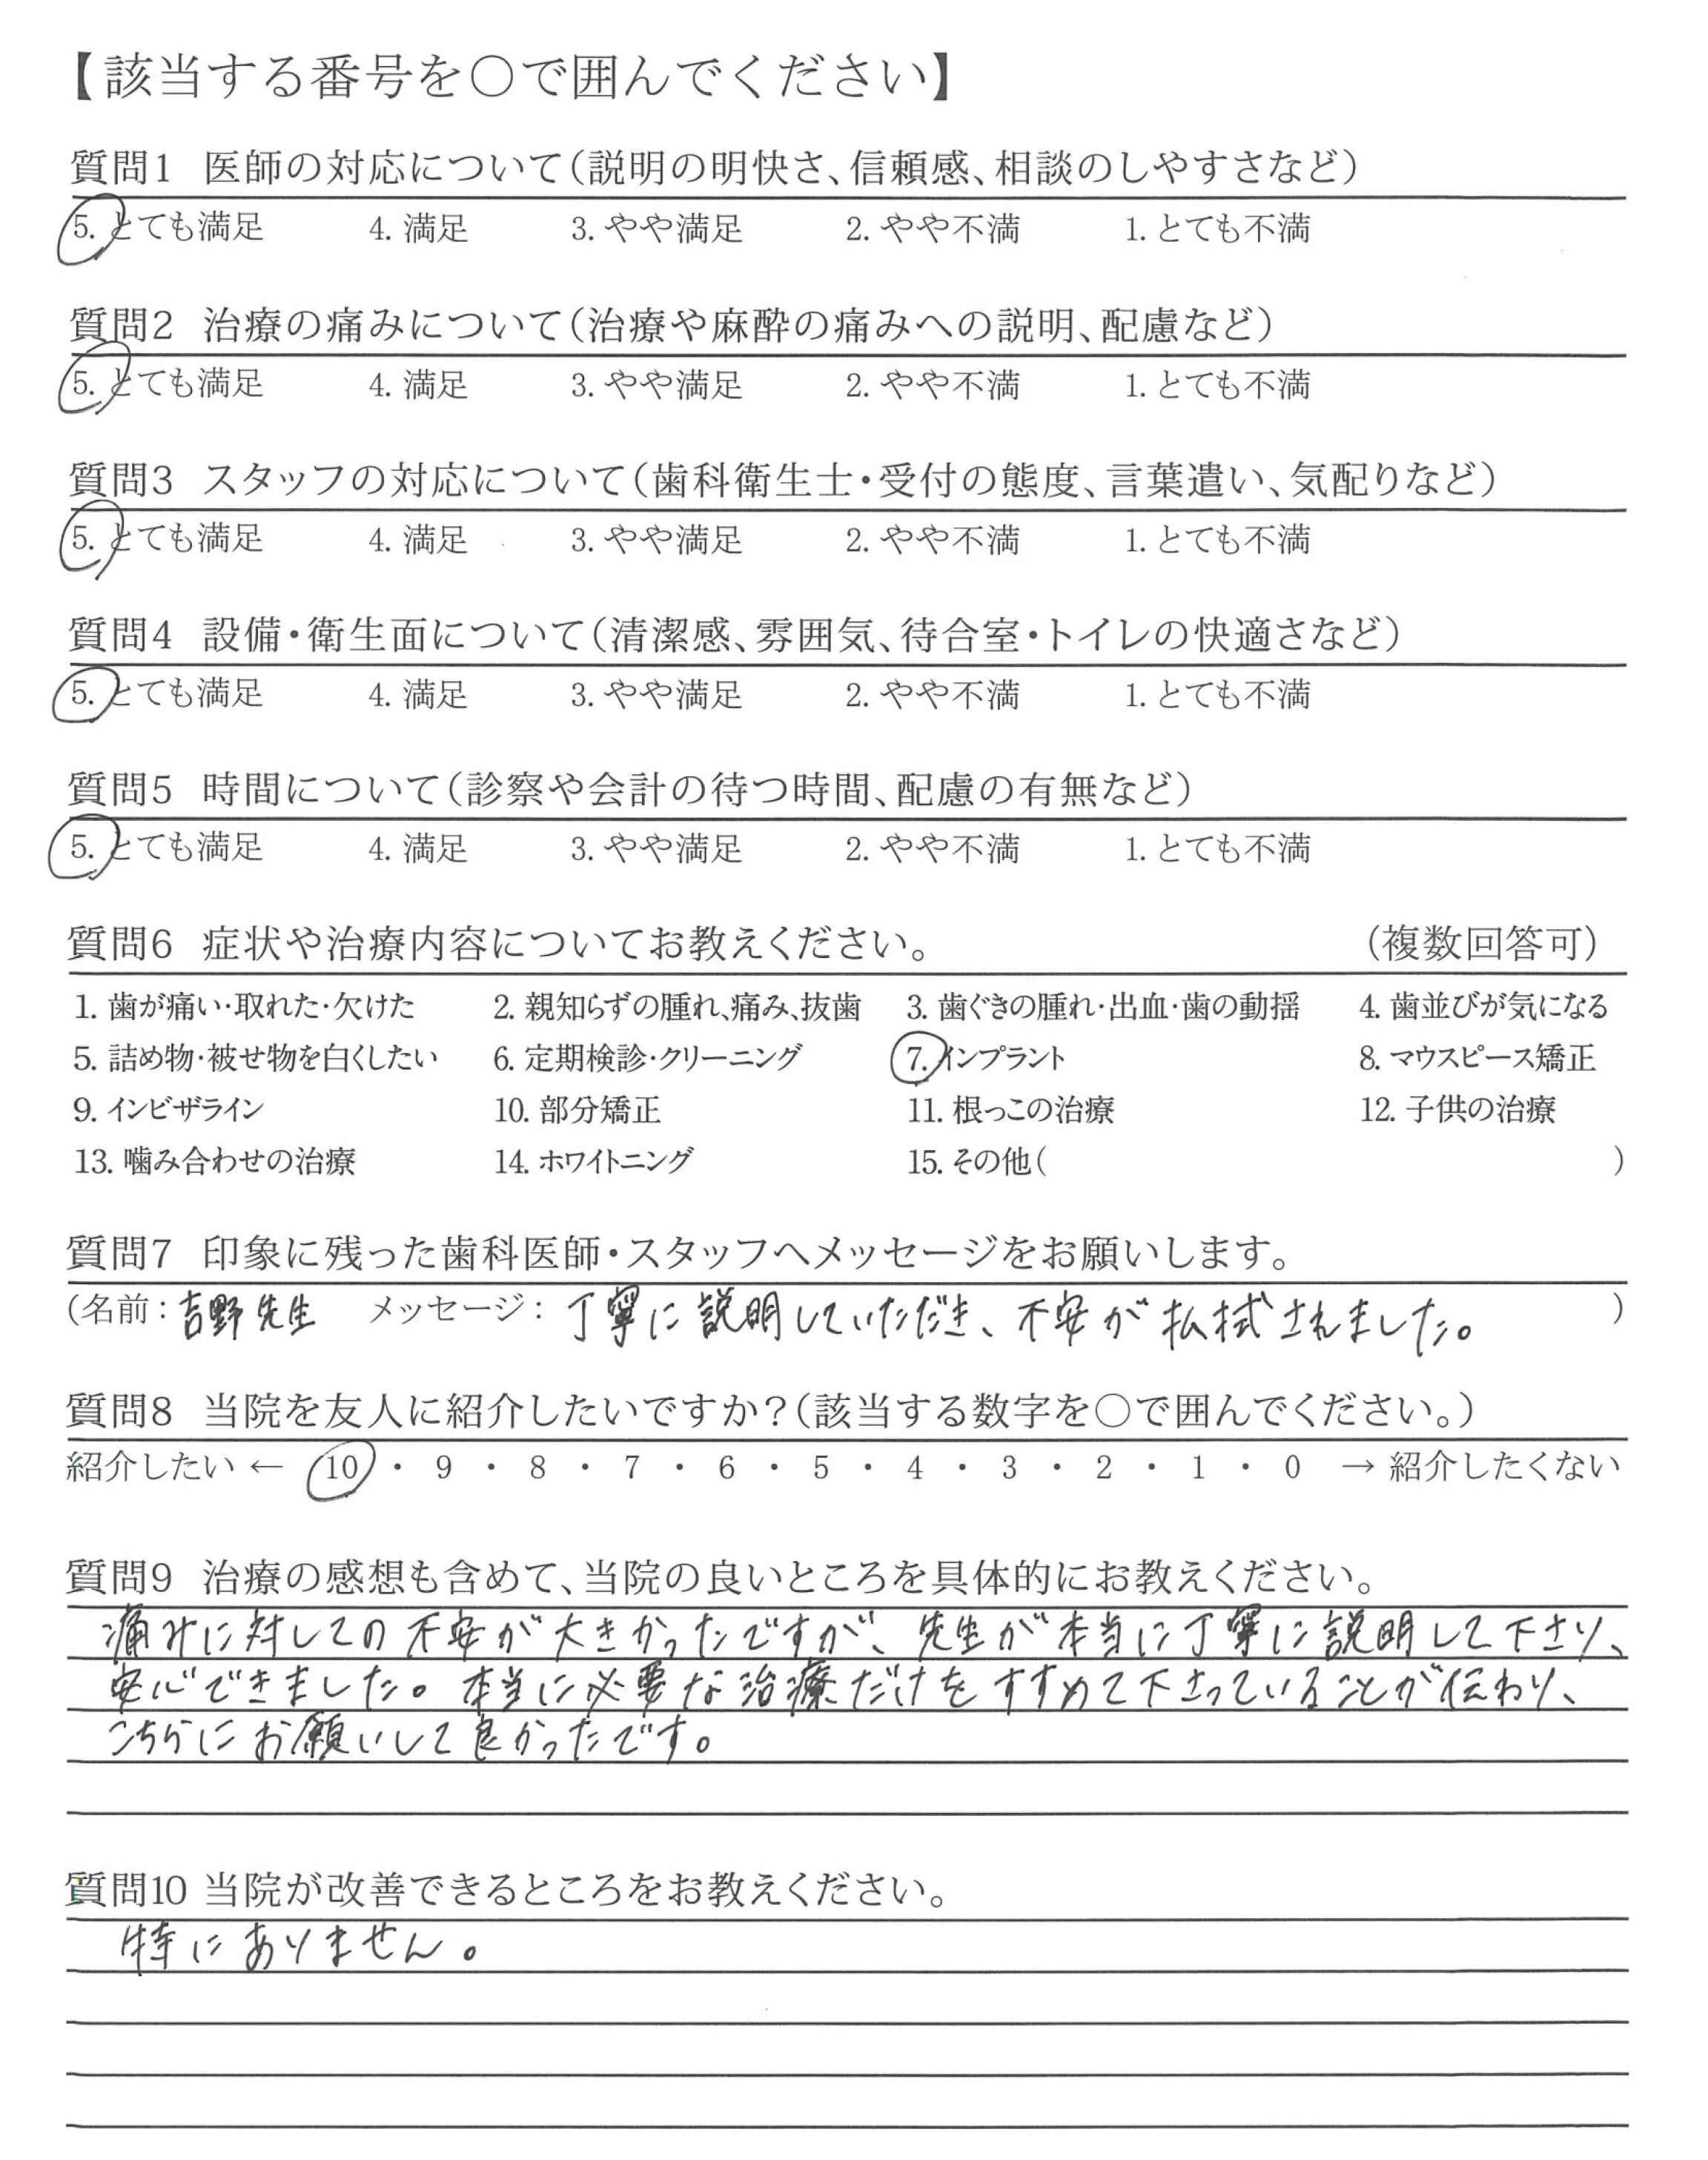 【該当する番号を○で囲んでください】
質問1 医師の対応について（説明の明快さ、信頼感、相談のしやすさなど）
5. とても満足 4. 満足 3. やや満足 2. やや不満 1. とても不満
質問2 治療の痛みについて（治療や麻酔の痛みへの説明、配慮など）
5. とても満足 4. 満足 3. やや満足 2. やや不満 1. とても不満
質問3 スタッフの対応について（歯科衛生士・受付の態度、言葉遣い、気配りなど）
5. とても満足 4. 満足 3. やや満足 2. やや不満 1. とても不満
質問4 設備・衛生面について（清潔感、雰囲気、待合室・トイレの快適さなど）
5. とても満足 4. 満足 3. やや満足 2. やや不満 1. とても不満
質問5 時間について（診察や会計の待つ時間、配慮の有無など）
5. とても満足 4. 満足 3. やや満足 2. やや不満 1. とても不満
質問6 症状や治療内容についてお教えください。 （複数回答可）
1. 歯が痛い・取れた・欠けた 2. 親知らずの腫れ、痛み、抜歯 3. 歯ぐきの腫れ・出血・歯の動揺 4. 歯並びが気になる
5. 詰め物・被せ物を白くしたい 6. 定期検診・クリーニング 7. インプラント 8. マウスピース矯正
9. インビザライン 10. 部分矯正 11. 根っこの治療 12. 子供の治療
13. 噛み合わせの治療 14. ホワイトニング 15. その他（ ）
質問7 印象に残った歯科医師・スタッフへメッセージをお願いします。
（名前：吉野先生 メッセージ：丁寧に説明していただき、不安が払拭されました。 ）
質問8 当院を友人に紹介したいですか？（該当する数字を○で囲んでください。）
紹介したい ← 10 ・ 9 ・ 8 ・ 7 ・ 6 ・ 5 ・ 4 ・ 3 ・ 2 ・ 1 ・ 0 → 紹介したくない
質問9 治療の感想も含めて、当院の良いところを具体的にお教えください。
痛みに対しての不安が大きかったですが、先生が本当に丁寧に説明して下さり、
安心できました。本当に必要な治療だけをすすめて下さっていることが伝わり、
こちらにお願いして良かったです。
質問10 当院が改善できるところをお教えください。
特にありません。